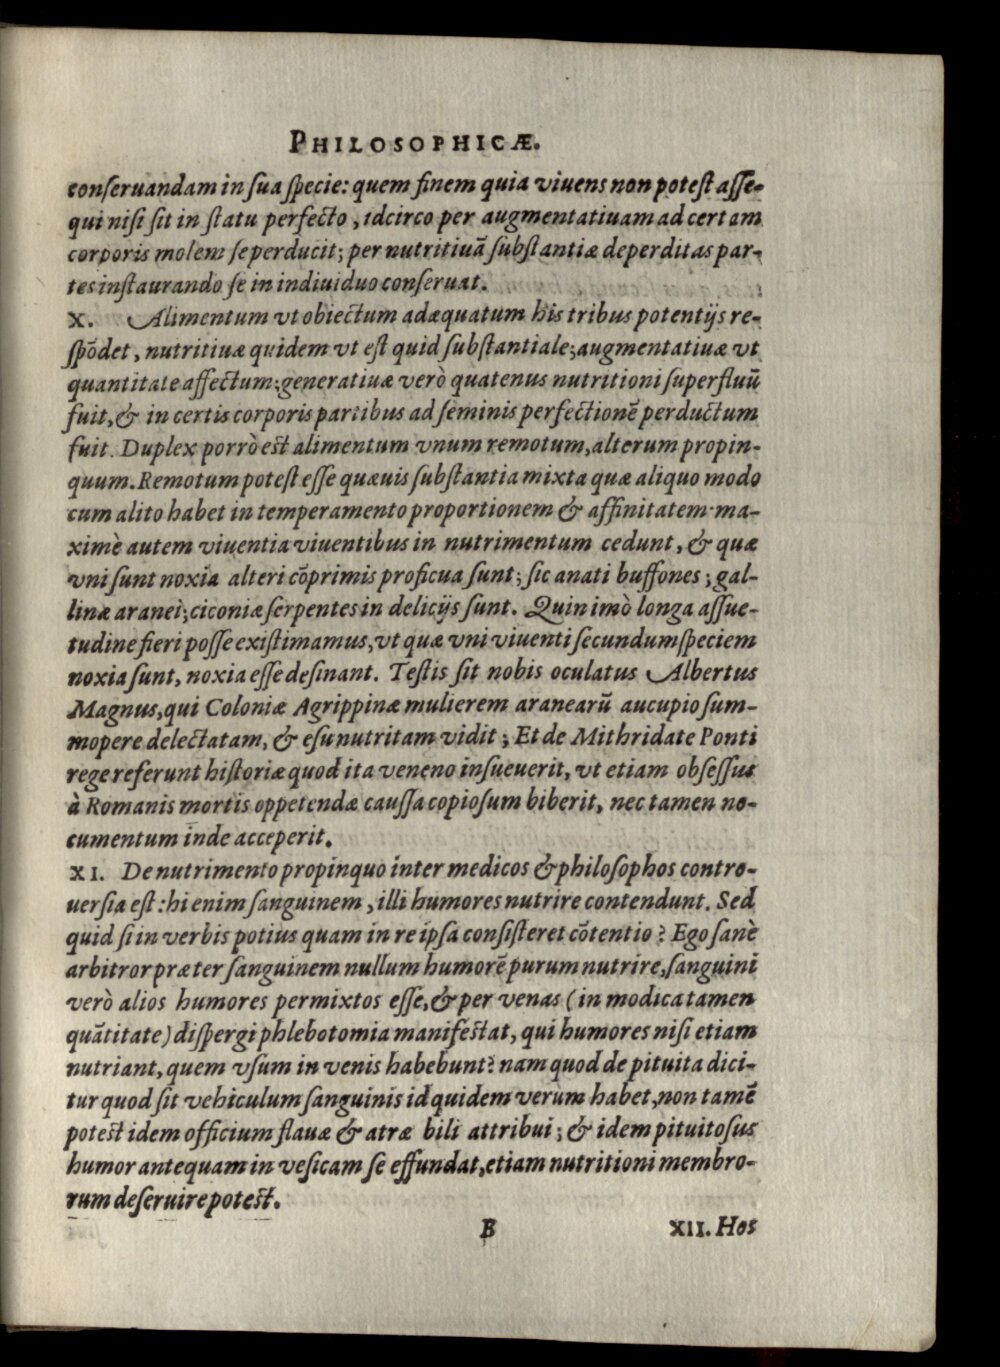 PHILOSOPHICÆ.
conſeruandam in ſua ſpecie: quem finem quia viuens non poteſt aſſe-
qui niſi ſit in ſtatu perfecto, idcirco per augmentatiuam ad certam
corporis molem ſe perducit; per nutritiuā ſubſtantiæ deperditas par-
tes inſtaurando ſe in indiuiduo conſeruat.
X. Alimentum vt obiectum adæquatum his tribus potentijs re-
ſpōdet, nutritiuæ quidem vt eſt quid ſubſtantiale; augmentatiuæ vt
quantitate affectum; generatiuæ verò quatenus nutritioni ſuperfluū
fuit, & in certis corporis partibus ad ſeminis perfectionē perductum
fuit. Duplex porrò eſt alimentum vnum remotum, alterum propin-
quum. Remotum poteſt eſſe quæuis ſubſtantia mixta quæ aliquo modo
cum alito habet in temperamento proportionem & affinitatem· ma-
ximè autem viuentia viuentibus in nutrimentum cedunt, & quæ
vni ſunt noxia alteri cōprimis proficua ſunt; ſic anati buffones; gal-
linæ aranei; ciconiæ ſerpentes in delicijs ſunt. Quinimò longa aſſue-
tudine fieri poſſe exiſtimamus, vt quæ vni viuenti ſecundum ſpeciem
noxia ſunt, noxia eſſe deſinant. Teſtis ſit nobis oculatus Albertus
Magnus, qui Coloniæ Agrippinæ mulierem aranearū aucupio ſum-
mopere delectatam, & eſu nutritam vidit; Et de Mithridate Ponti
rege referunt hiſtoriæ quod ita veneno inſueuerit, vt etiam obſeſſus
à Romanis mortis oppetendæ cauſſa copioſum biberit, nec tamen no-
cumentum inde acceperit.
XI. De nutrimento propinquo inter medicos & philoſophos contro-
uerſia eſt: hi enim ſanguinem, illi humores nutrire contendunt. Sed
quid ſi in verbis potius quam in re ipſa conſiſteret cōtentio? Ego ſanè
arbitror præter ſanguinem nullum humorē purum nutrire, ſanguini
verò alios humores permixtos eſſe, & per venas (in modica tamen
quātitate) diſpergi phlebotomia manifeſtat, qui humores niſi etiam
nutriant, quem vſum in venis habebunt? nam quod de pituita dici-
tur quod ſit vehiculum ſanguinis id quidem verum habet, non tamē
poteſt idem officium flauæ & atræ bili attribui; & idem pituitoſus
humor antequam in veſicam ſe effundat, etiam nutritioni membro-
rum deſeruire poteſt.
B XII. Hos